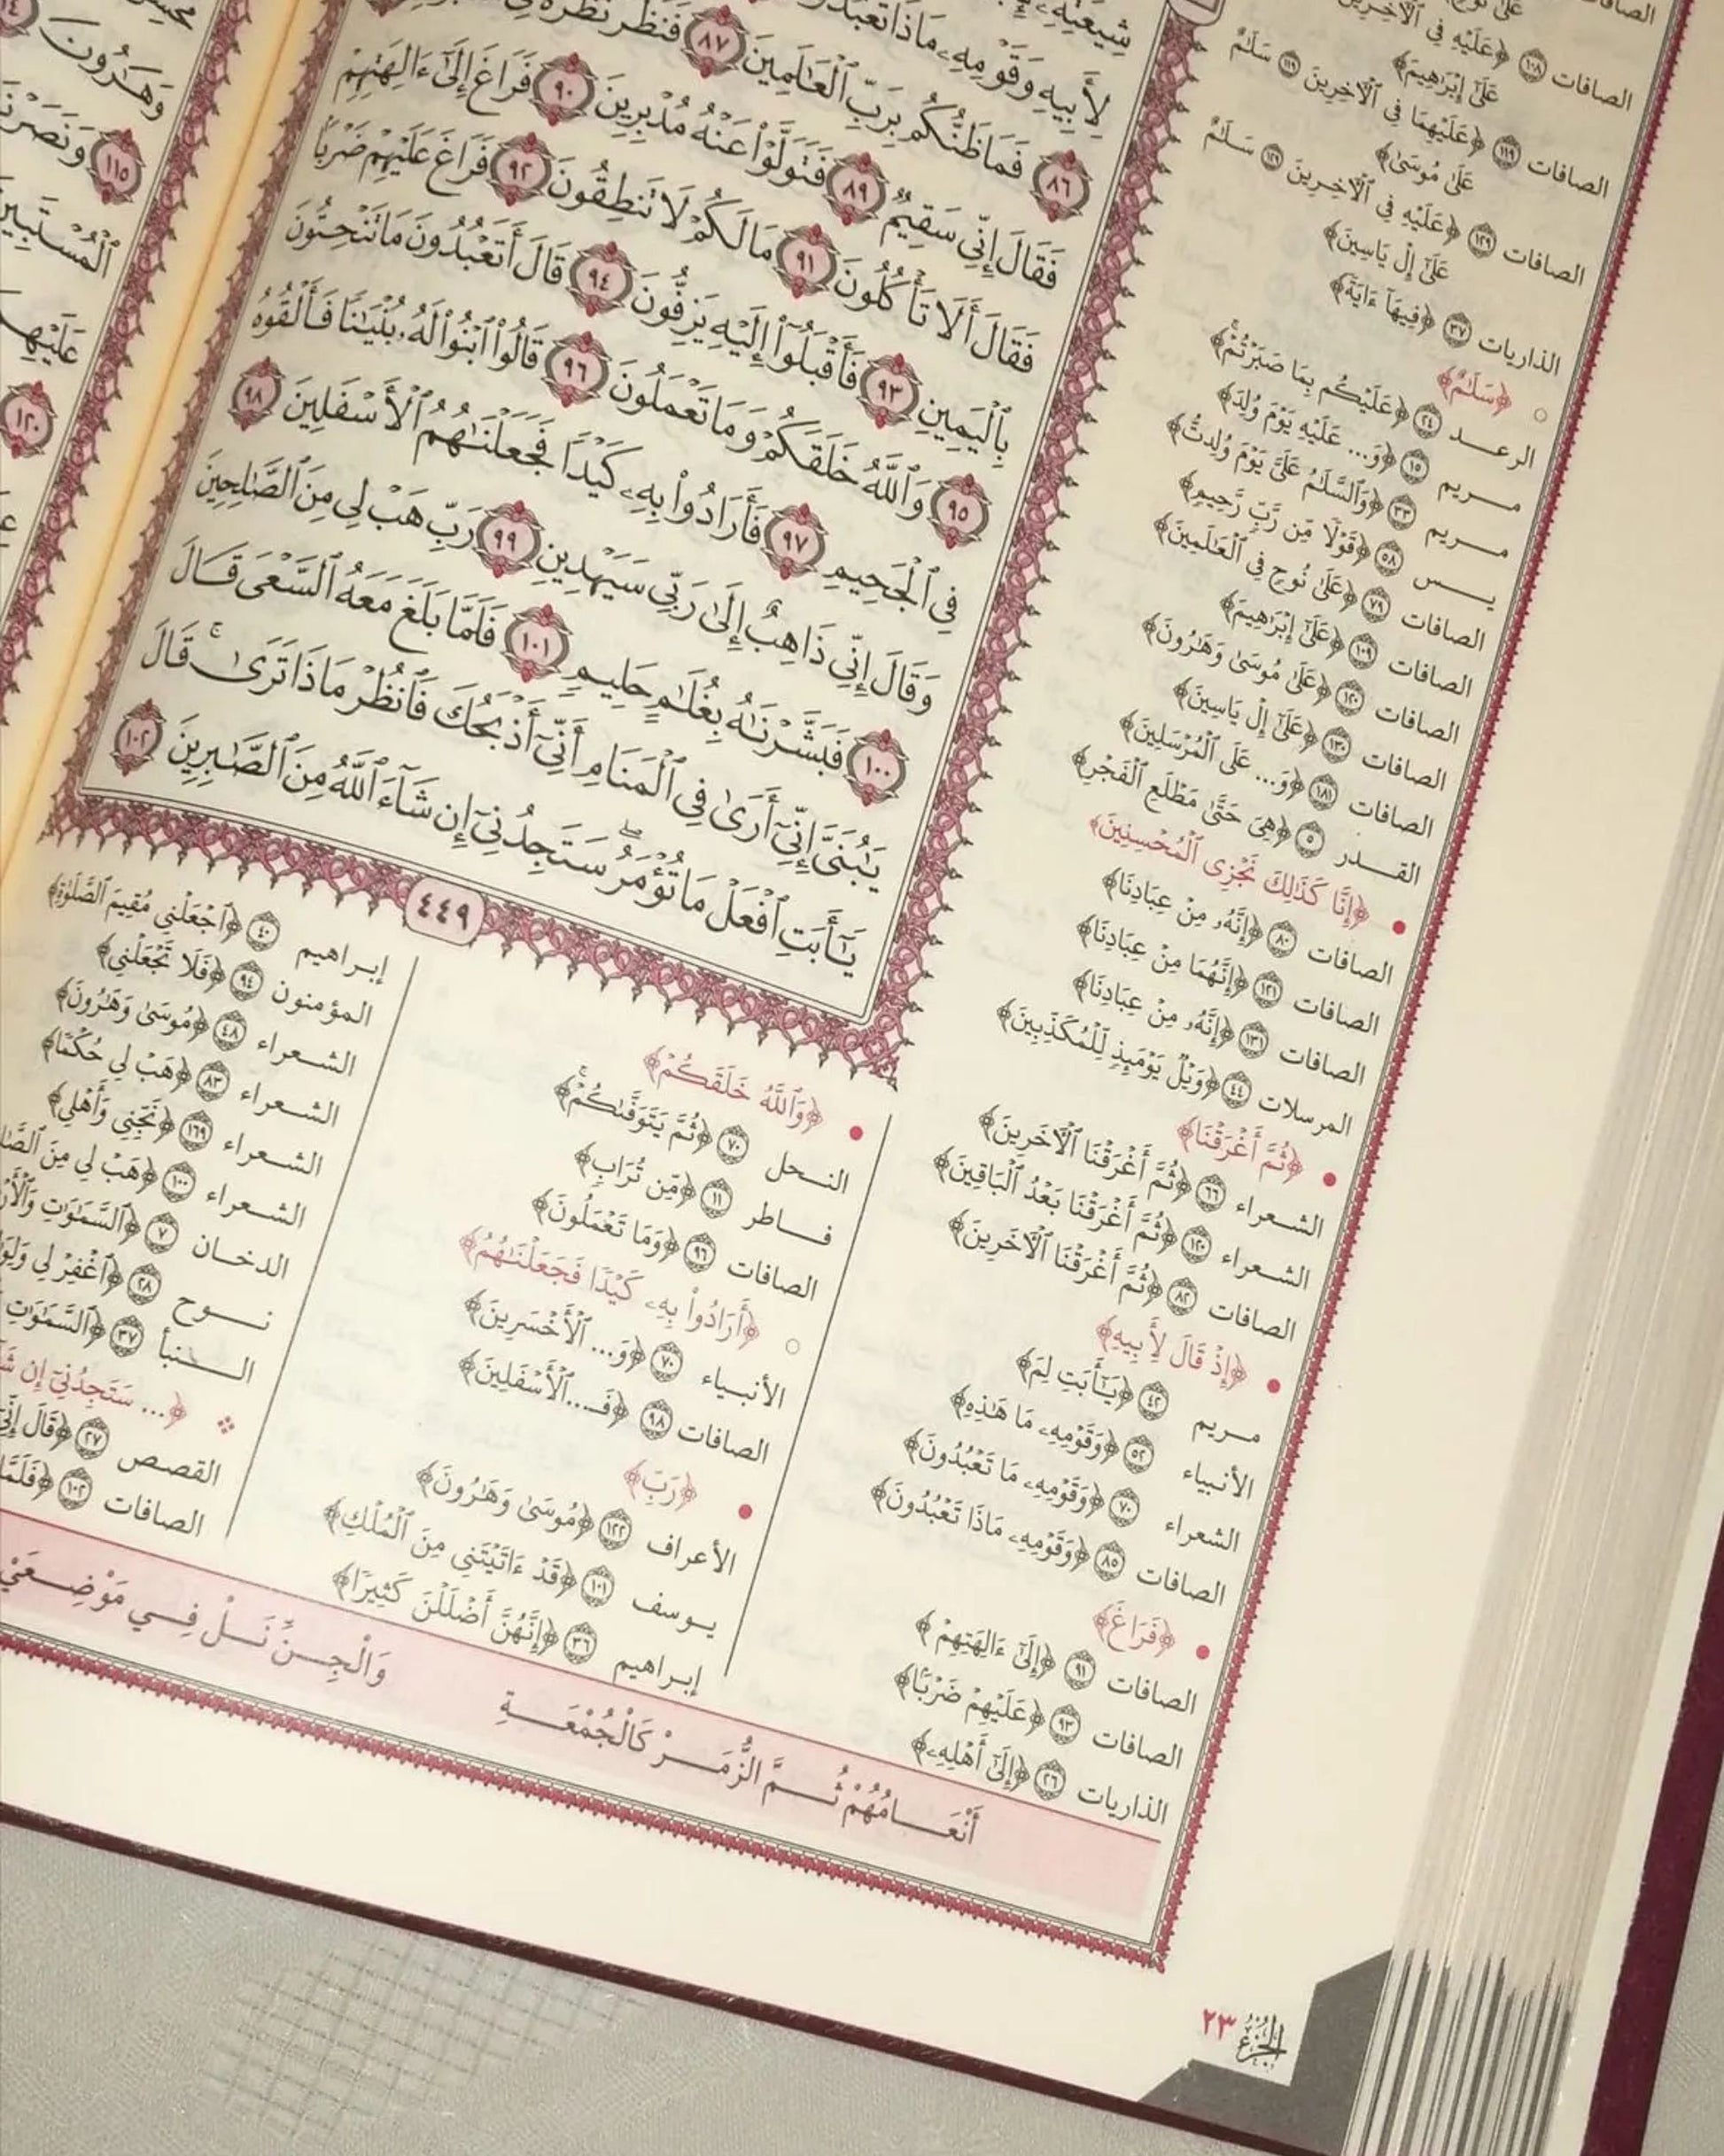 شِيعَتِهِۦ
لِأَبِيهِ وَقَوْمِهِۦ مَاذَا تَعْبُدُونَ
٨٦ فَمَا ظَنُّكُم بِرَبِّ ٱلْعَٰلَمِينَ ٨٧ فَنَظَرَ نَظْرَةً فِي
فَقَالَ إِنِّي سَقِيمٌ ٨٩ فَتَوَلَّوْا۟ عَنْهُ مُدْبِرِينَ ٩٠ فَرَاغَ إِلَىٰٓ ءَالِهَتِهِمْ
فَقَالَ أَلَا تَأْكُلُونَ ٩١ مَا لَكُمْ لَا تَنطِقُونَ ٩٢ فَرَاغَ عَلَيْهِمْ ضَرْبًۢا
بِٱلْيَمِينِ ٩٣ فَأَقْبَلُوٓا۟ إِلَيْهِ يَزِفُّونَ ٩٤ قَالَ أَتَعْبُدُونَ مَا تَنْحِتُونَ
٩٥ وَٱللَّهُ خَلَقَكُمْ وَمَا تَعْمَلُونَ ٩٦ قَالُوا۟ ٱبْنُوا۟ لَهُۥ بُنْيَٰنًا فَأَلْقُوهُ
فِي ٱلْجَحِيمِ ٩٧ فَأَرَادُوا۟ بِهِۦ كَيْدًا فَجَعَلْنَٰهُمُ ٱلْأَسْفَلِينَ ٩٨
وَقَالَ إِنِّي ذَاهِبٌ إِلَىٰ رَبِّي سَيَهْدِينِ ٩٩ رَبِّ هَبْ لِي مِنَ ٱلصَّٰلِحِينَ
١٠٠ فَبَشَّرْنَٰهُ بِغُلَٰمٍ حَلِيمٍ ١٠١ فَلَمَّا بَلَغَ مَعَهُ ٱلسَّعْيَ قَالَ
يَٰبُنَيَّ إِنِّيٓ أَرَىٰ فِي ٱلْمَنَامِ أَنِّيٓ أَذْبَحُكَ فَٱنظُرْ مَاذَا تَرَىٰ ۚ قَالَ
يَٰٓأَبَتِ ٱفْعَلْ مَا تُؤْمَرُ ۖ سَتَجِدُنِيٓ إِن شَآءَ ٱللَّهُ مِنَ ٱلصَّٰبِرِينَ ١٠٢
٤٤٩
الصافات ١٠٨ ﴿عَلَيْهِ فِي ٱلْأَخِرِينَ ١٠٨ سَلَٰمٌ
عَلَىٰٓ إِبْرَٰهِيمَ﴾
الصافات ١١٩ ﴿عَلَيْهِمَا فِي ٱلْأَخِرِينَ ١١٩ سَلَٰمٌ
عَلَىٰ مُوسَىٰ﴾
الصافات ١٢٩ ﴿عَلَيْهِ فِي ٱلْأَخِرِينَ ١٢٩ سَلَٰمٌ
عَلَىٰٓ إِلْ يَاسِينَ﴾
الذاريات ٣٧ ﴿فِيهَآ ءَايَةً﴾
﴿سَلَٰمٌ﴾
الرعد ٢٤ ﴿عَلَيْكُم بِمَا صَبَرْتُمْ ۚ﴾
مريم ١٥ ﴿وَ... عَلَيْهِ يَوْمَ وُلِدَ﴾
مريم ٣٣ ﴿وَٱلسَّلَٰمُ عَلَيَّ يَوْمَ وُلِدتُّ﴾
يس ٥٨ ﴿قَوْلًا مِّن رَّبٍّ رَّحِيمٍ﴾
الصافات ٧٩ ﴿عَلَىٰ نُوحٍ فِي ٱلْعَٰلَمِينَ﴾
الصافات ١٠٩ ﴿عَلَىٰٓ إِبْرَٰهِيمَ﴾
الصافات ١٢٠ ﴿عَلَىٰ مُوسَىٰ وَهَٰرُونَ﴾
الصافات ١٣٠ ﴿عَلَىٰٓ إِلْ يَاسِينَ﴾
الصافات ١٨١ ﴿وَ... عَلَى ٱلْمُرْسَلِينَ﴾
القدر ٥ ﴿هِيَ حَتَّىٰ مَطْلَعِ ٱلْفَجْرِ﴾
﴿إِنَّا كَذَٰلِكَ نَجْزِي ٱلْمُحْسِنِينَ﴾
الصافات ٨٠ ﴿إِنَّهُۥ مِنْ عِبَادِنَا﴾
الصافات ١٢١ ﴿إِنَّهُمَا مِنْ عِبَادِنَا﴾
الصافات ١٣١ ﴿إِنَّهُۥ مِنْ عِبَادِنَا﴾
المرسلات ٤٤ ﴿وَيْلٌ يَوْمَئِذٍ لِّلْمُكَذِّبِينَ﴾
﴿ثُمَّ أَغْرَقْنَا﴾
الشعراء ٦٦ ﴿ثُمَّ أَغْرَقْنَا ٱلْأَخَرِينَ﴾
الشعراء ١٢٠ ﴿ثُمَّ أَغْرَقْنَا بَعْدُ ٱلْبَاقِينَ﴾
الصافات ٨٢ ﴿ثُمَّ أَغْرَقْنَا ٱلْأَخَرِينَ﴾
﴿إِذْ قَالَ لِأَبِيهِ﴾
مريم ٤٢ ﴿يَٰٓأَبَتِ لِمَ﴾
الأنبياء ٥٢ ﴿وَقَوْمِهِۦ مَا هَٰذِهِ﴾
الشعراء ٧٠ ﴿وَقَوْمِهِۦ مَا تَعْبُدُونَ﴾
الصافات ٨٥ ﴿وَقَوْمِهِۦ مَاذَا تَعْبُدُونَ﴾
﴿فَرَاغَ﴾
الصافات ٩١ ﴿إِلَىٰٓ ءَالِهَتِهِمْ﴾
الصافات ٩٣ ﴿عَلَيْهِمْ ضَرْبًۢا﴾
الذاريات ٢٦ ﴿إِلَىٰٓ أَهْلِهِۦ﴾
﴿وَٱللَّهُ خَلَقَكُمْ﴾
النحل ٧٠ ﴿ثُمَّ يَتَوَفَّىٰكُمْ ۚ﴾
فاطر ١١ ﴿مِّن تُرَابٍ﴾
الصافات ٩٦ ﴿وَمَا تَعْمَلُونَ﴾
﴿أَرَادُوا۟ بِهِۦ كَيْدًا فَجَعَلْنَٰهُمُ﴾
الأنبياء ٧٠ ﴿وَ... ٱلْأَخْسَرِينَ﴾
الصافات ٩٨ ﴿فَـ...ٱلْأَسْفَلِينَ﴾
﴿رَبِّ﴾
الأعراف ١٢٢ ﴿مُوسَىٰ وَهَٰرُونَ﴾
يوسف ١٠١ ﴿قَدْ ءَاتَيْتَنِي مِنَ ٱلْمُلْكِ﴾
إبراهيم ٣٦ ﴿إِنَّهُنَّ أَضْلَلْنَ كَثِيرًا﴾
إبراهيم ٤٠ ﴿ٱجْعَلْنِي مُقِيمَ ٱلصَّلَوٰةِ﴾
المؤمنون ٩٤ ﴿فَلَا تَجْعَلْنِي﴾
الشعراء ٤٨ ﴿مُوسَىٰ وَهَٰرُونَ﴾
الشعراء ٨٣ ﴿هَبْ لِي حُكْمًا﴾
الشعراء ١٦٩ ﴿نَجِّنِي وَأَهْلِي﴾
الشعراء ١٠٠ ﴿هَبْ لِي مِنَ
الدخان ٧ ﴿ٱلسَّمَٰوَٰتِ
نوح ٢٨ ﴿ٱغْفِرْ لِي
النبأ ٣٧ ﴿ٱلسَّمَٰوَٰتِ
﴿... سَتَجِدُنِيٓ إِن
القصص ٢٧ ﴿قَالَ
الصافات ١٠٢ ﴿فَلَمَّا
أَنْعَامُهُمْ ثُمَّ الزُّمَرْ كَالْجُمْعَةِ
وَالْجِنِّ نَلْ فِي مَوْضِعَيْ
الجزء ٢٣
وَهَٰرُونَ
١١٥
ٱلْمُسْتَبِينَ
١٢٠